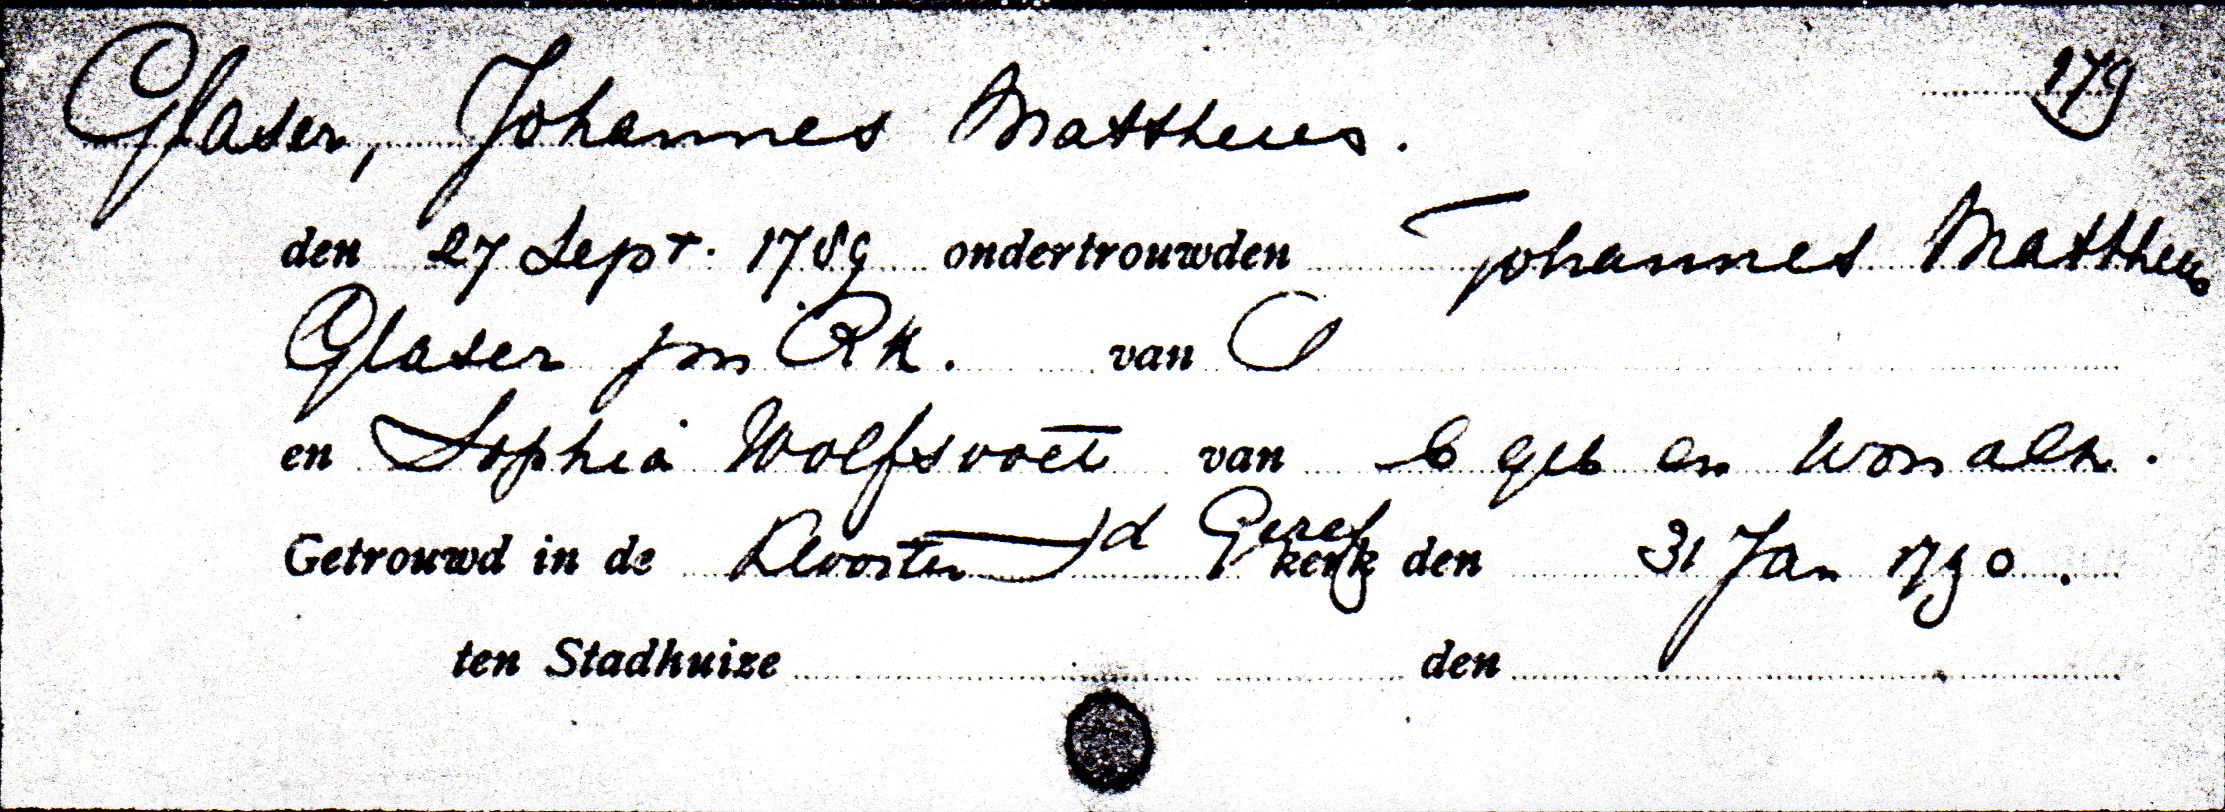 179
Glaser, Johannes Mattheus.
den 27 Sept. 1789 ondertrouwden Johannes Mattheus
Glaser jm RK. van
en Sophia Wolfsvoet van geb en won alh.
Getrouwd in de Klooster Geref kerk den 31 Jan 1790.
ten Stadhuize den